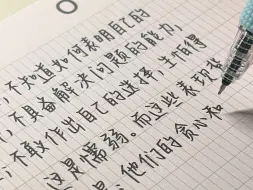 ,不知道如何表明自己的
,不具备解决问题的能力,
,不敢作出自己的选择,生怕得
这是懦弱。而这些表现皆
,他们的贪心和